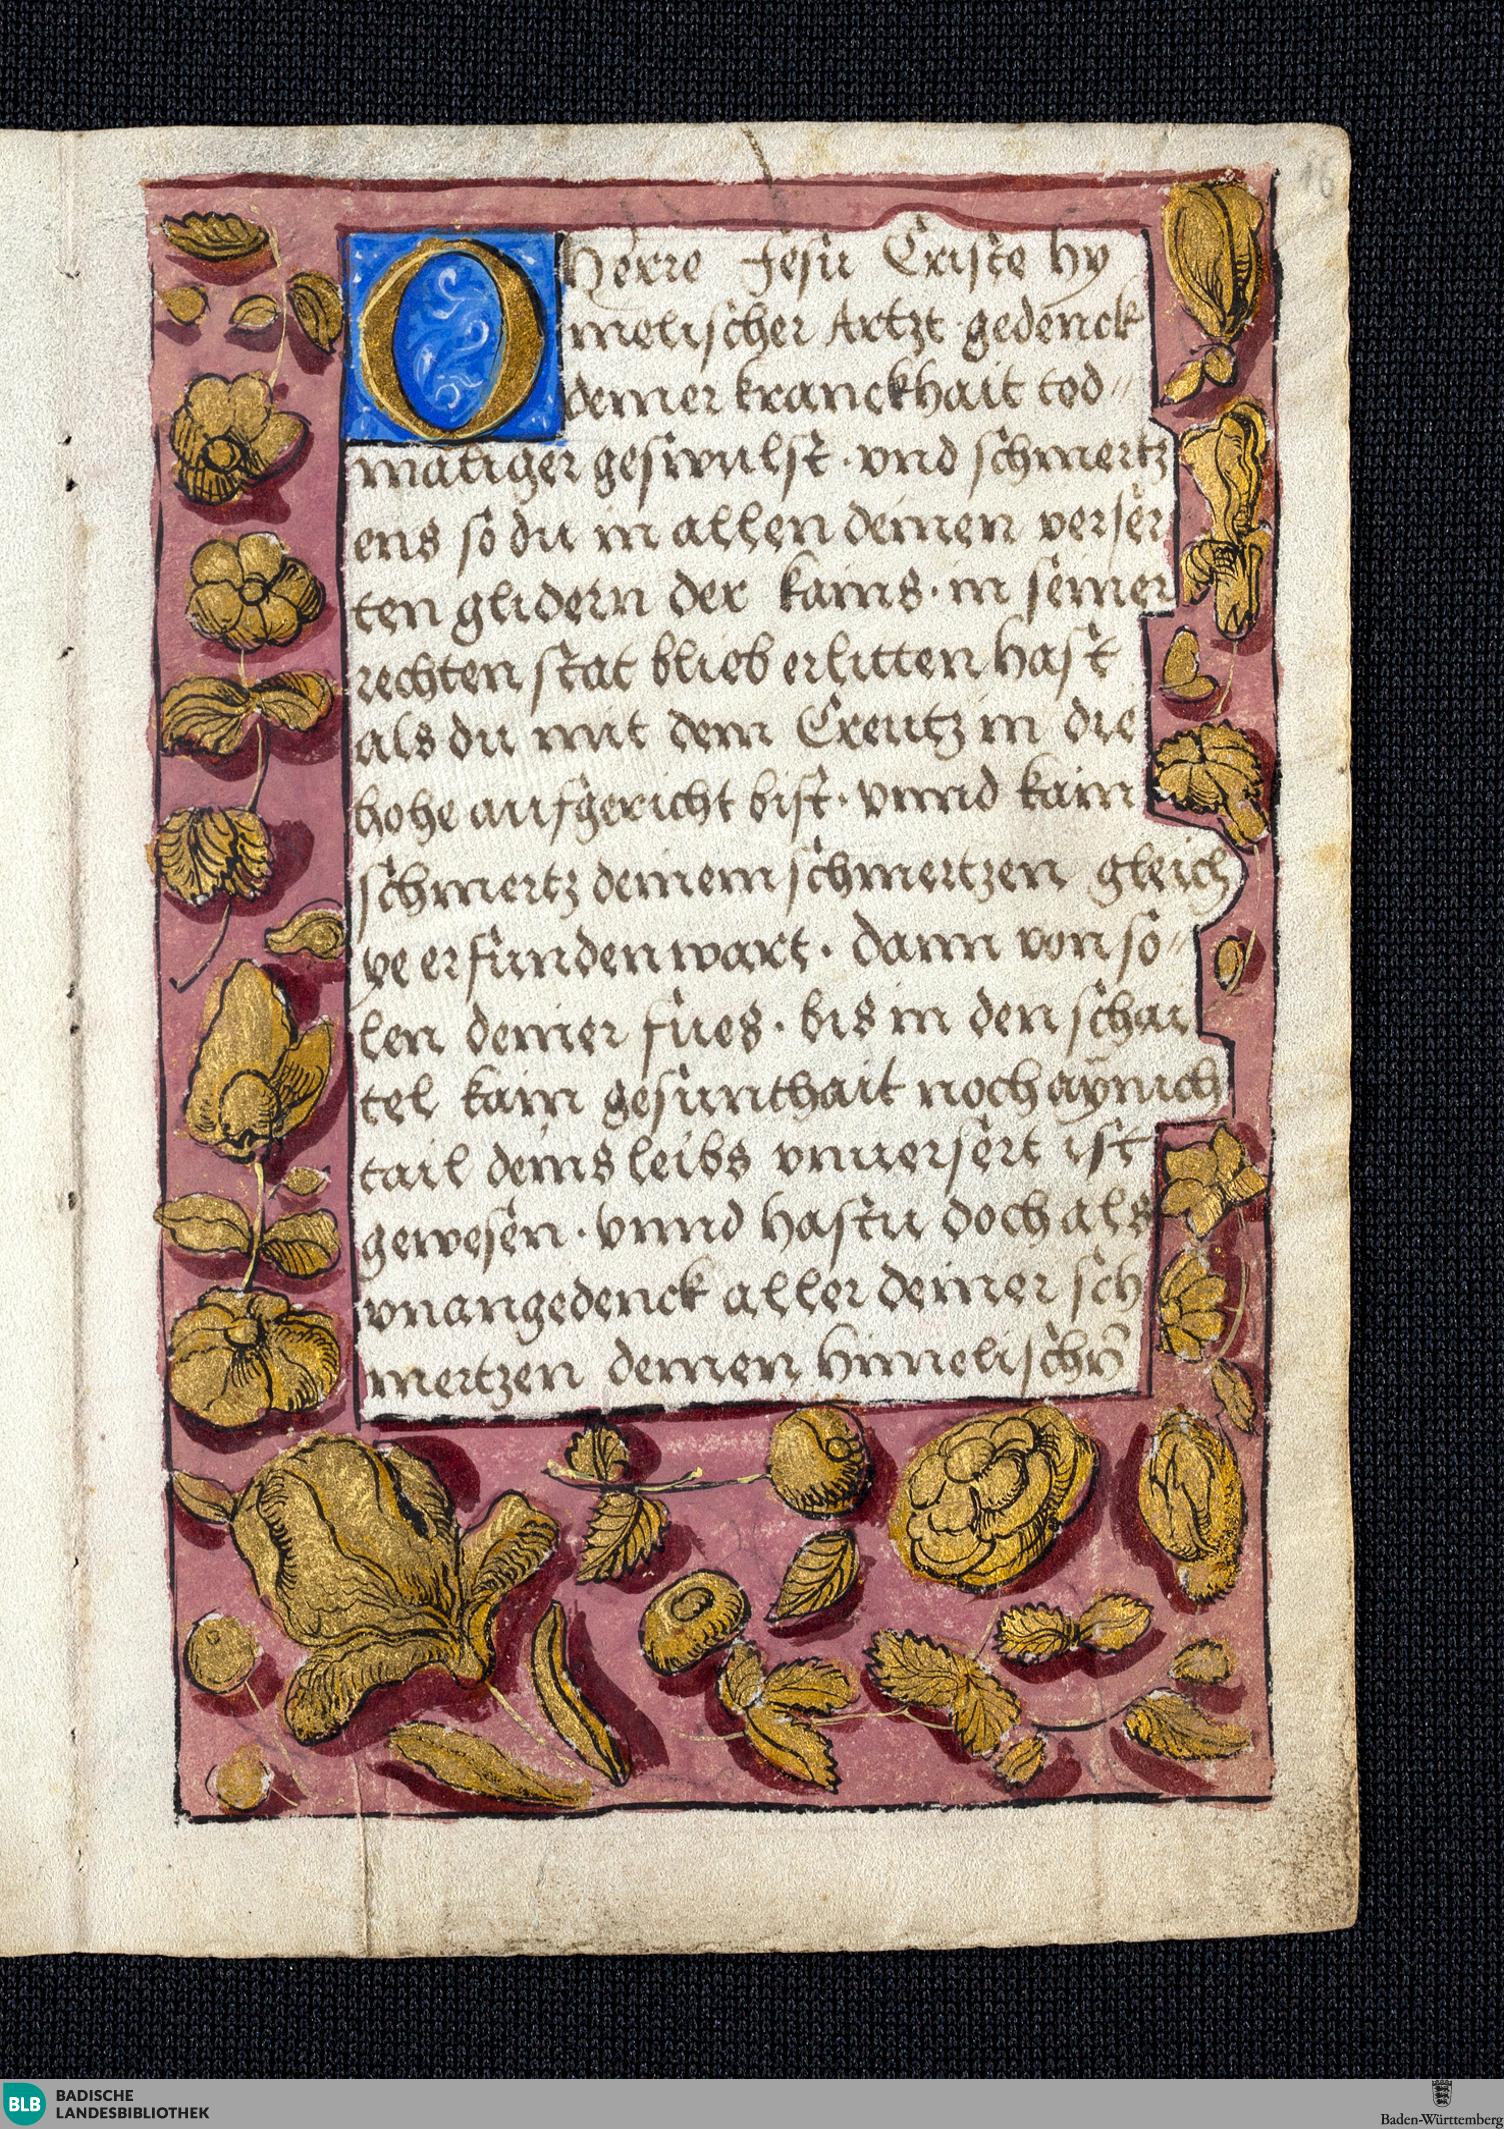 16
O Herre Jesu Criste hy
melischer Artzt · gedenck
deiner kranckhait tod〃
maliger geswulst · vnd schmertz
ens so du in allen deinen verser
ten glidern der kains · in seiner
rechten stat blieb erlitten hast
als du mit dem Creutz in die
hohe aufgericht bist · vnnd kain
schmertz deinem schmertzen gleich
ye erfunden wart · dann von so〃
len deiner fües · bis in den schai
tel kain gesunthait noch aÿnich
tail deins leibs vnuersert ist
gewesen · vnnd hastu doch als
vnangedenck aller deiner sch
mertzen deinen himelischñ
BLB BADISCHE
LANDESBIBLIOTHEK
Baden-Württemberg